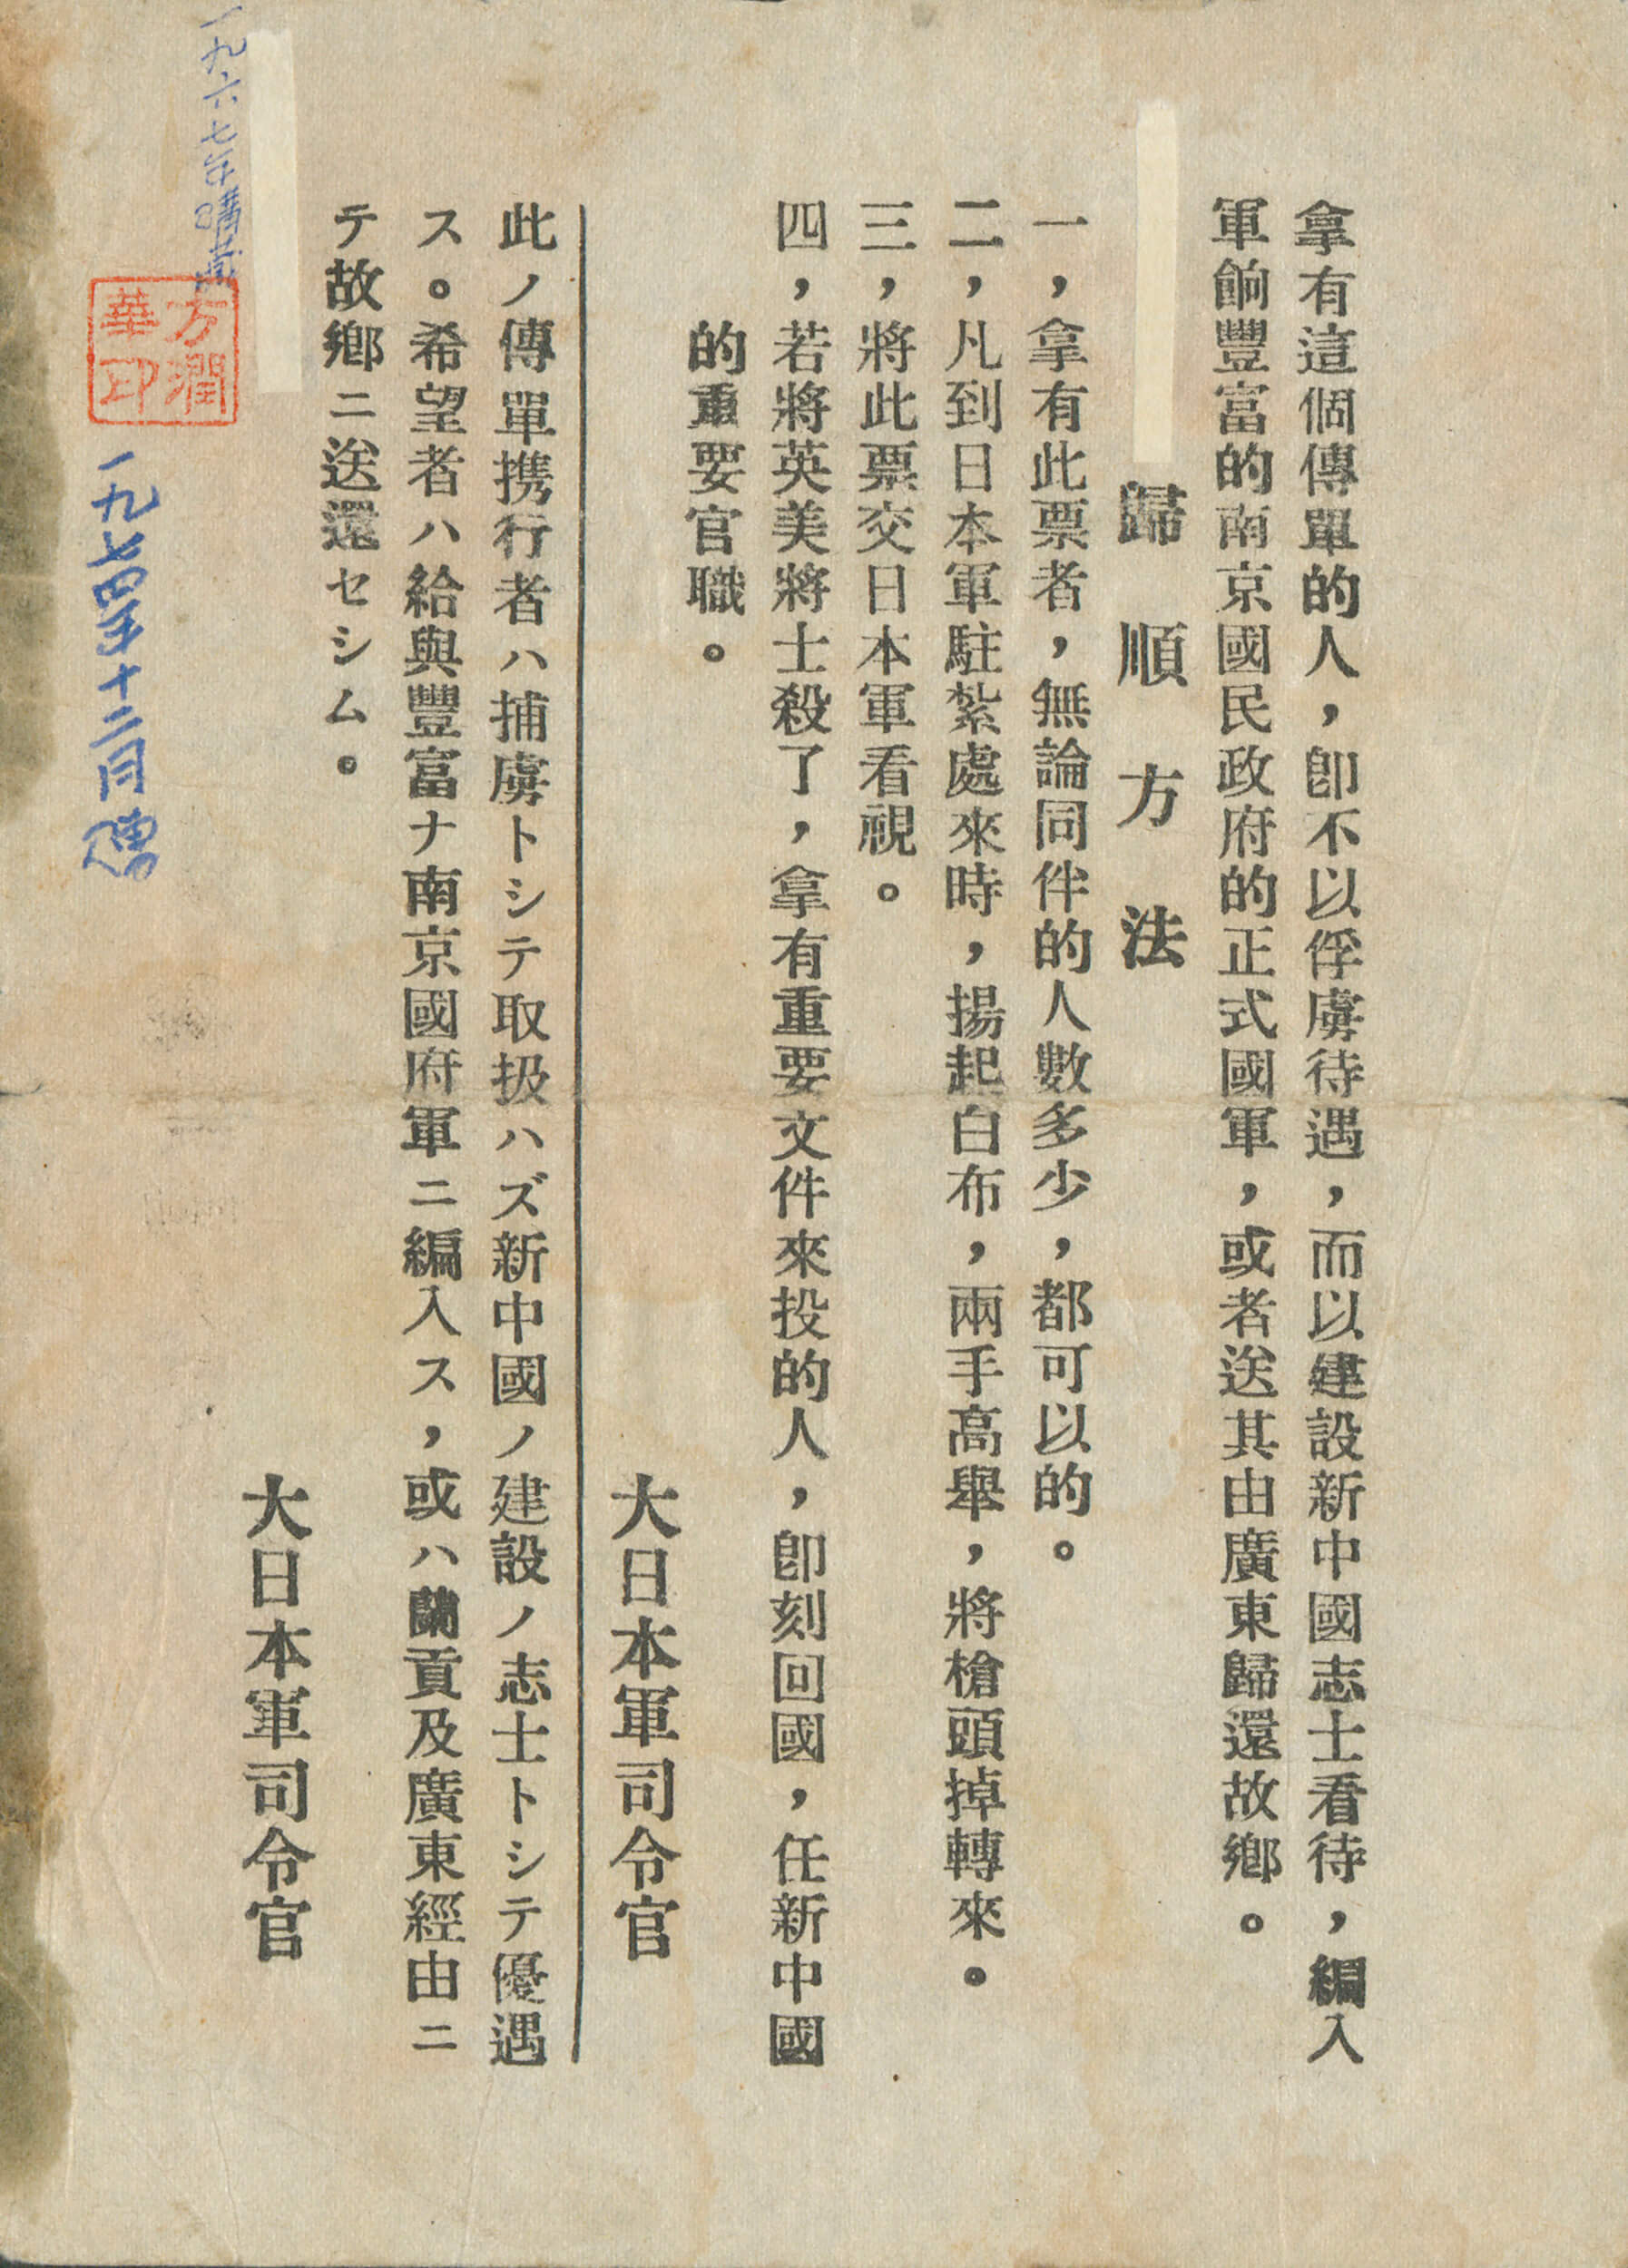 拿有這個傳單的人，卽不以俘虜待遇，而以建設新中國志士看待，編入
軍餉豐富的南京國民政府的正式國軍，或者送其由廣東歸還故鄕。
歸順方法
一，拿有此票者，無論同伴的人數多少，都可以的。
二，凡到日本軍駐紮處來時，揚起白布，兩手高舉，將槍頭掉轉來。
三，將此票交日本軍看視。
四，若將英美將士殺了，拿有重要文件來投的人，卽刻回國，任新中國
的重要官職。
大日本軍司令官
此ノ傳單携行者ハ捕虜トシテ取扱ハズ新中國ノ建設ノ志士トシテ優遇
ス。希望者ハ給與豐富ナ南京國府軍ニ編入ス，或ハ蘭貢及廣東經由ニ
テ故鄕ニ送還セシム。
大日本軍司令官
一九六七年購藏
方潤
華印
一九七四年十二月贈